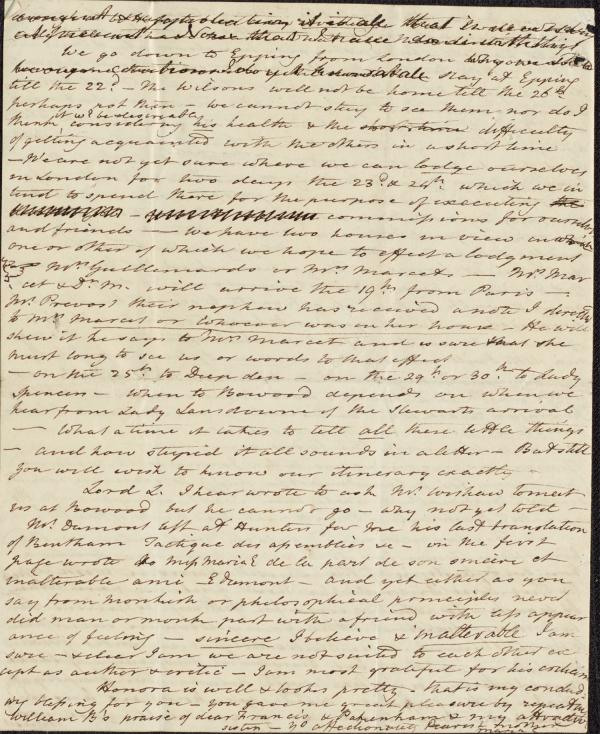 We go down to Epping from London
stay at Epping
till the 22d – The Wilsons will not be home till the 26th
perhaps not then – we cannot stay to see them nor do I
think it wd be desirable considering his health & the difficulty
of getting acquainted with the others in a short time
– We are not yet sure where we can lodge ourselves
in London for two days the 23d & 24th which we in
tend to spend there for the purpose of executing
– commissions for ourselves
and friends – we have two houses in view in
one or other of which we hope to effect a lodgment
Mrs Guillemards or Mrs Marcets – Mrs Mar
cet & Dr M. will arrive the 19th from Paris –
Mr Prevost their nephew has received a note I directed
to Mrs Marcet or whoever was in her house – He will
shew it he says to Mrs Marcet and is sure that she
must long to see us or words to that effect
– on the 25th to Deepden – on the 29th or 30th to Lady
Spencers – when to Bowood depends on when we
hear from Lady Lansdowne of the Stewarts arrival
– What a time it takes to tell all these little things
– and how stupid it all sounds in a letter – But still
you will wish to know our itinerary exactly –
Lord L. I hear wrote to ask Mr Wishaw to meet
us at Bowood but he cannot go – why not yet told –
Mr Dumont left at Hunters for me his last translation
of Bentham Tactique des assemblies &c – in the first
page wrote to Miss Maria E de la part de son sincère et
inalterable ami – E Dumont – and yet either as you
say from monkish or philosophical principles never
did man or monk part with a friend with less appear
ance of feeling – sincere I believe & inalterable I am
sure – & else I am we are not suited to each other ex
cept as author & critic – I am most grateful for his criticism
Honora is well & looks pretty – that is my conclud
ing blessing for you – you gave me great pleasure by repeating
William B's praise of dear Francis & Pakenham & my
sister – yr affectionate
Maria